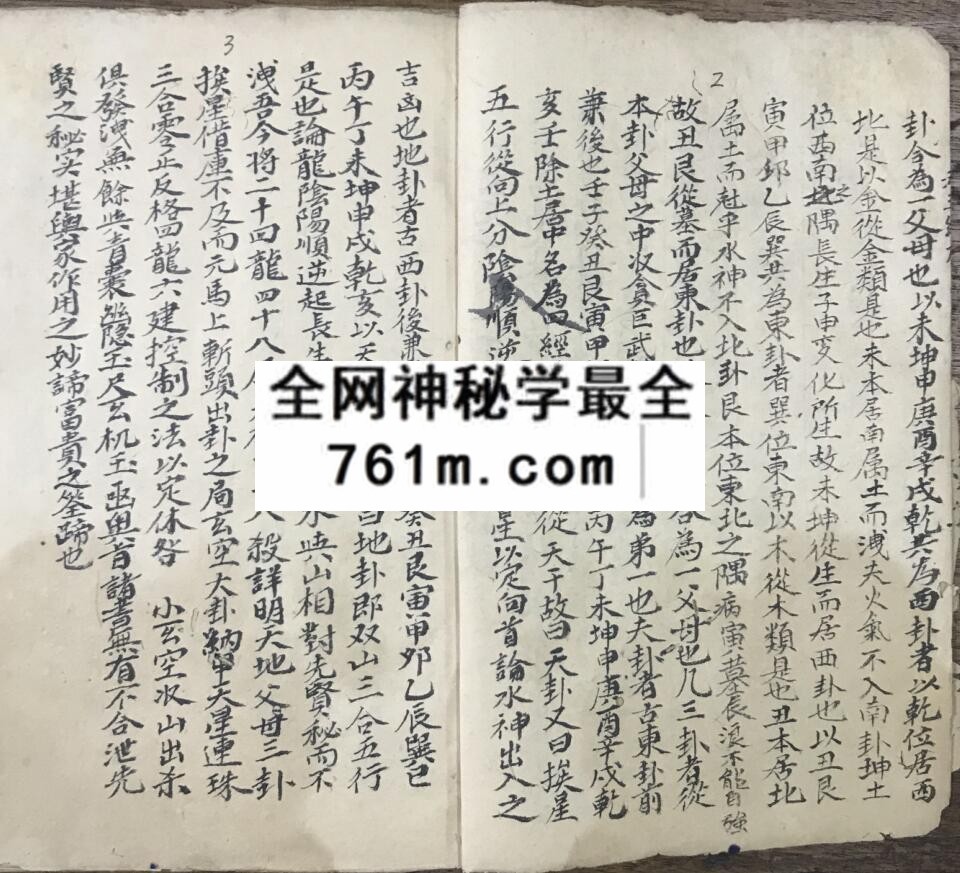 2
卦今為一父母也以未坤申庚酉辛戌乾共為西卦者以乾位居西
北是以金從金類是也未本居南属土而洩夫火氣不入南卦坤土
位西南之隅長生子申变化所生故未坤從生而居西卦也以丑艮
寅甲卯乙辰巽共為東卦者巽位東南以木從木類是也丑本居北
属土而尅乎水神不入北卦艮本位東北之隅病寅墓辰浪不能自強
故丑艮從墓而居東卦也 為一父母也凡三卦者從
本卦父母之中收貪巨武 為第一也夫卦者古東卦前
兼後也壬子癸丑艮寅甲 丙午丁未坤申庚酉辛戌乾
亥壬除土居中名為四經 從天干故曰天卦又曰挨星
五行從向上分陰陽順逆 星以定向首論水神出入之
3
吉凶也地卦者古西卦後兼 癸丑艮寅甲卯乙辰巽巳
丙午丁未坤申戌乾亥以天 曰地卦即双山三合五行
是也論龍陰陽順逆起長生 水與山相對先賢秘而不
洩吾今將二十四龍四十八 殺詳明天地父母三卦
挨星借庫不及而元馬上斬頭出卦之局玄空大卦納甲天星連珠
三合零正反格四龍六建控制之法以定休咎 小玄空收山出杀
俱發洩無餘與青囊 隐玉尺玄机玉函奥旨諸書無有不合泄先
賢之秘实堪輿家作用之妙諦富貴之筌蹄也
全网神秘学最全
761m.com